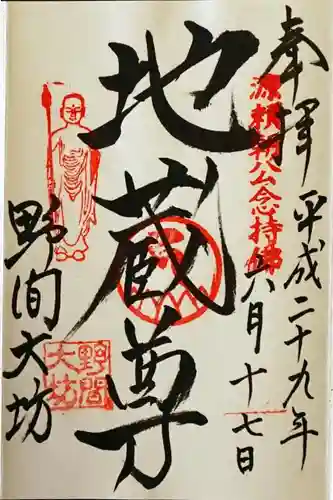 奉拝
平成二十九年
六月十七日
源頼朝公念持佛
地蔵尊
野间大坊
野間
大坊